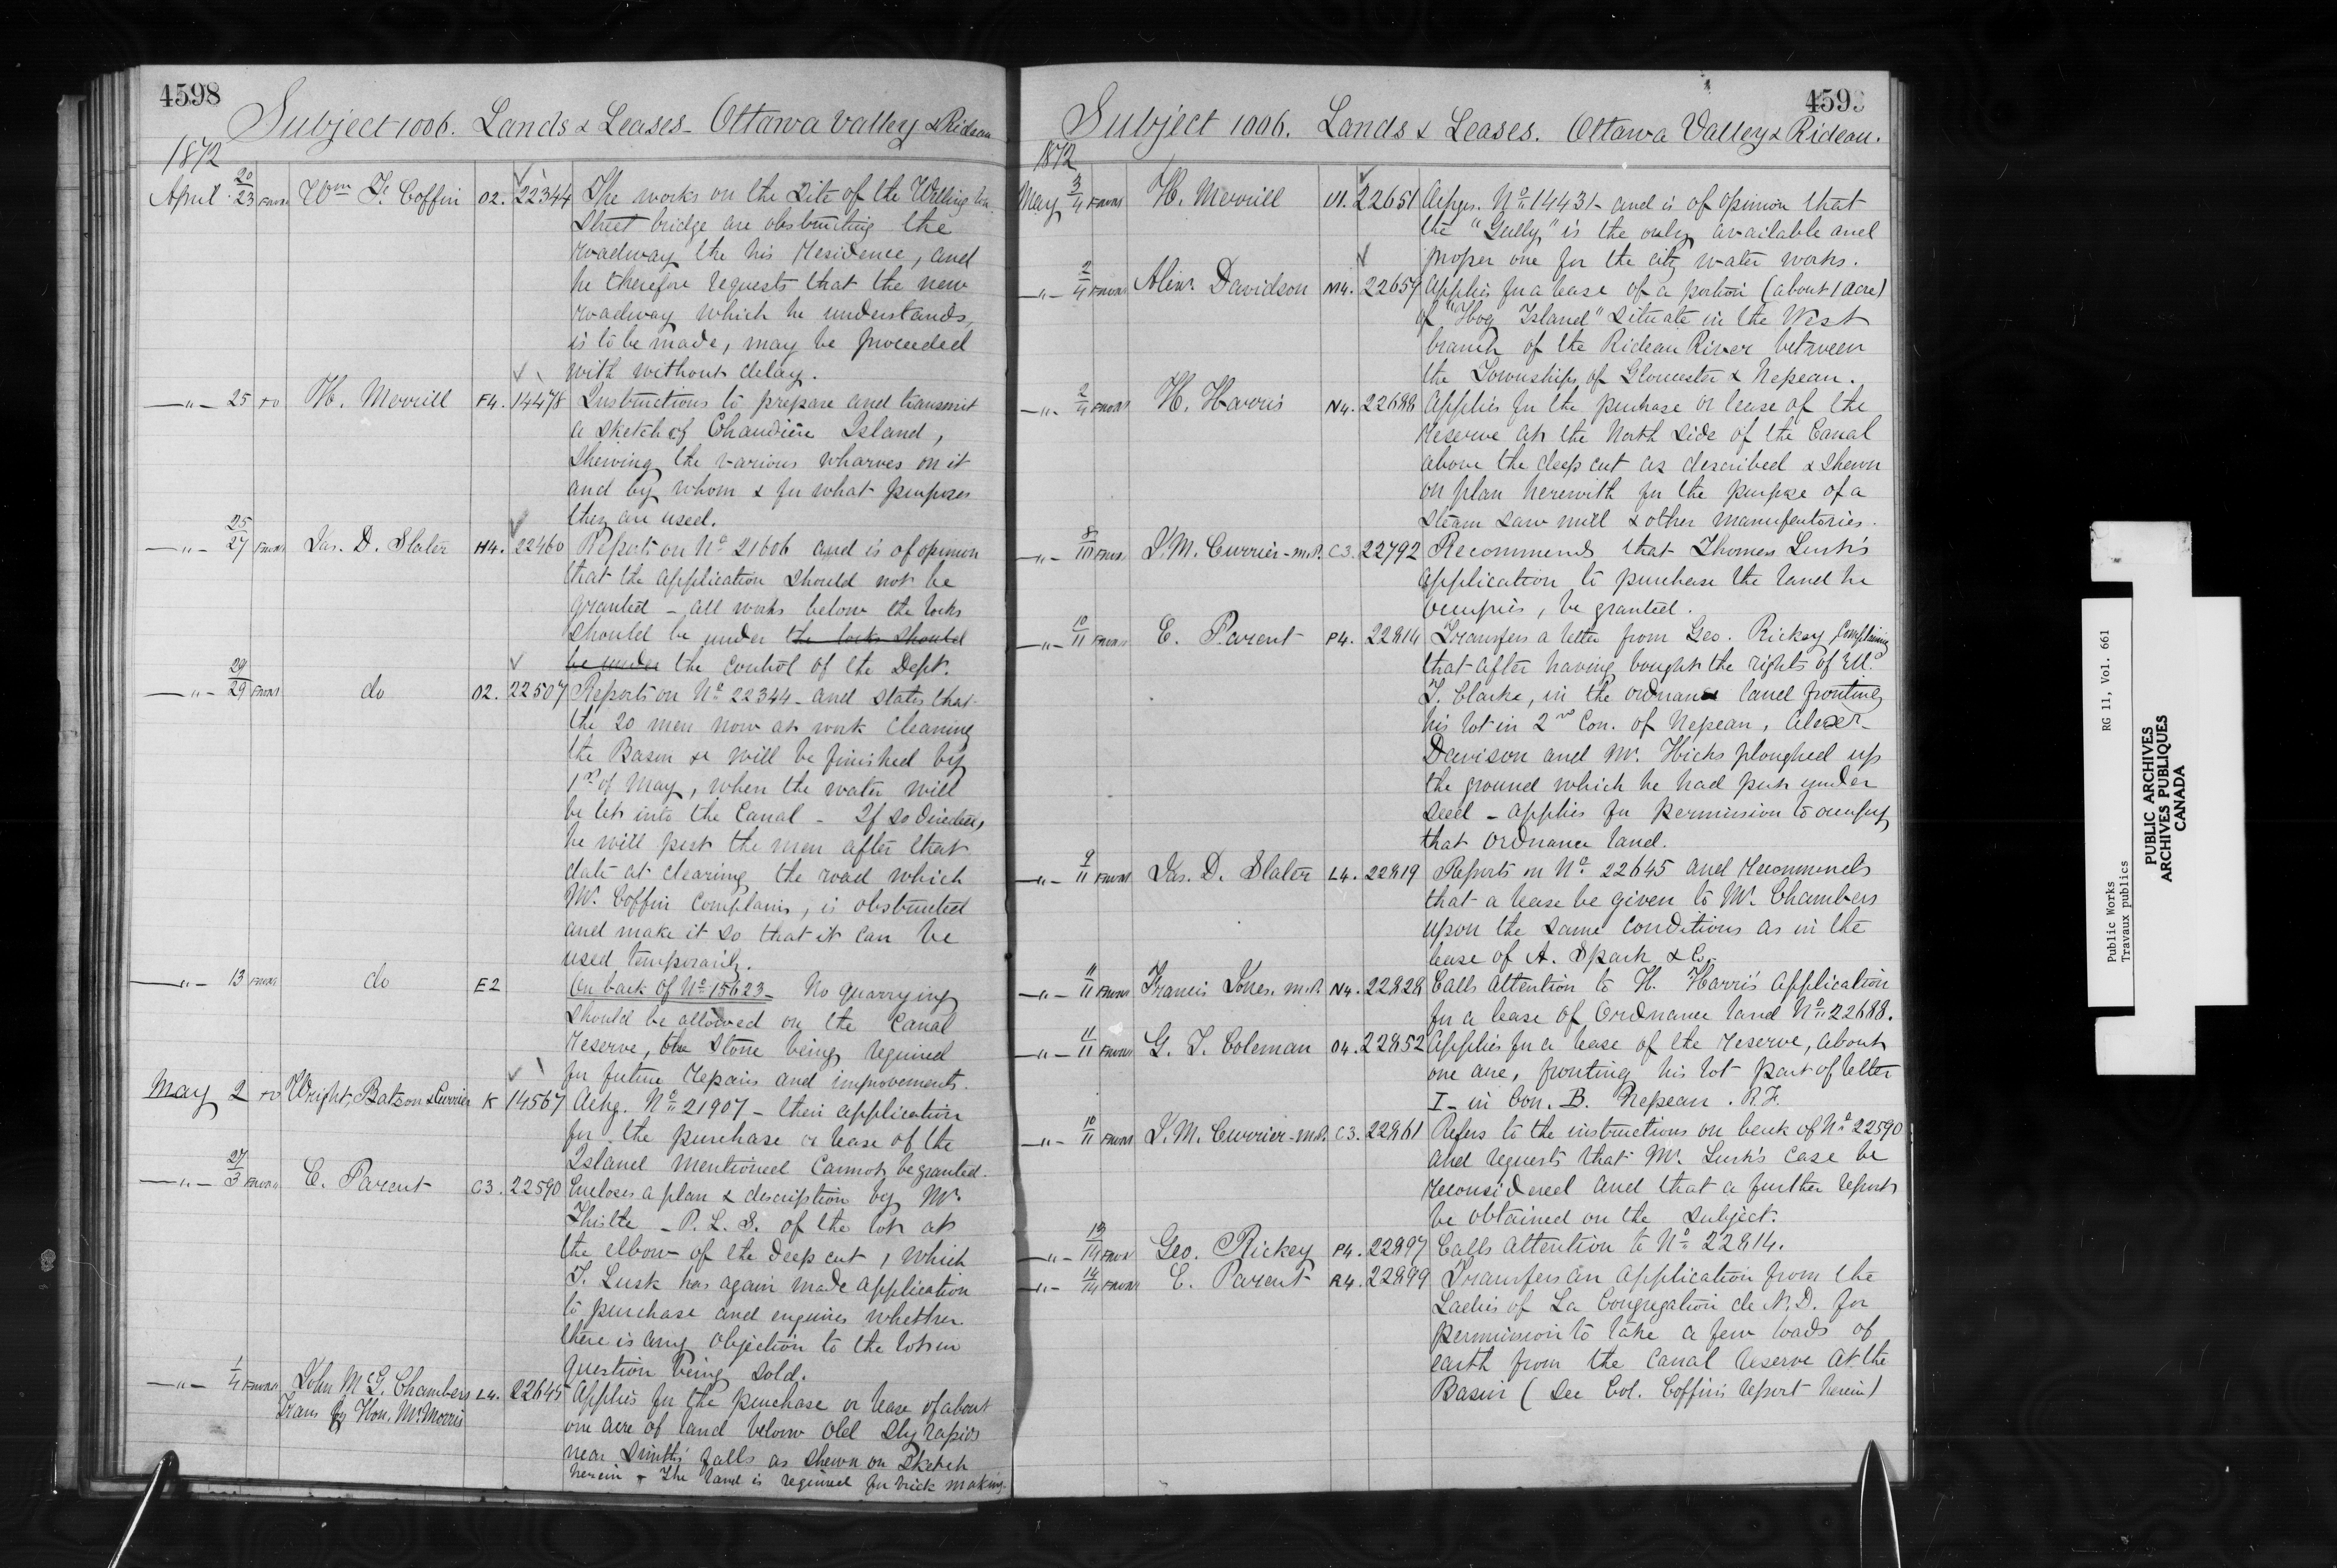 4598
Subject 1006. Lands & Leases - Ottawa Valley & Rideau
1872
April 20/23 From Wm F. Coffin O2. 22344 The works on the site of the Wellington
Street bridge are obstructing the
roadway the his residence, and
he therefore requests that the new
roadway which he understands,
is to be made, may be proceeded
with without delay.
—"— 25 To H. Merrill F4. 14478 Instructions to prepare and transmit
a sketch of Chaudière Island,
shewing the various wharves on it
and by whom & for what purposes
they are used.
—"— 25/27 From Jas. D. Slater H4. 22460 Reports on No 21606 and is of opinion
that the application should not be
granted - all works below the locks
should be under the locks should
be under the control of the Dept.
—"— 29/29 From do O2. 22507 Reports on No 22344 - and states that
the 20 men now at work cleaning
the Basin &c will be finished by
1st of May, when the water will
be let into the Canal - If so directed,
he will put the men after that
date at clearing the road which
Mr. Coffin complains, is obstructed
and make it so that it can be
used temporarily.
—"— 13 From do E2 On back of No 15623 - No quarrying
should be allowed on the Canal
Reserve, the stone being required
for future repairs and improvements.
May 2 To Wright, Batson & Currier K 14567 Ackg. No 21907 - their application
for the purchase or lease of the
Island mentioned cannot be granted.
—"— 27/3 From E. Parent C3. 22590 Encloses a plan & description by Mr.
Thistle - P. L. S. of the lot at
the elbow of the deep cut, which
T. Lusk has again made application
to purchase and enquires whether
there is any objection to the lot in
question being sold.
—"— 1/4 From John McG. Chambers L4. 22645 Applies for the purchase or lease of about
Trans by Hon. Mr Morris
one acre of land below Old Sly rapids
near Smith's falls as shewn on sketch
herein - The land is required for brick making.
4599
Subject 1006. Lands & Leases. Ottawa Valley & Rideau.
1872
May 3/4 From H. Merrill 22651 No 14431 - and is of opinion that
the "Gully" is the only available and
proper one for the city water works.
—"— 2/4 From Alexr. Davidson M4. 22659 Applies for a lease of a portion (about 1 acre)
of "Hog Island" situate in the West
branch of the Rideau River between
the Townships of Gloucester & Nepean.
—"— 2/4 From H. Harris N4. 22688 Applies for the purchase or lease of the
reserve at the North side of the Canal
above the deep cut as described & shewn
on plan herewith for the purpose of a
steam saw mill & other manufactories.
—"— 8/10 From J. M. Currier - M.P. C3. 22792 Recommends that Thomas Lusk's
application to purchase the land he
occupies, be granted.
—"— From E. Parent P4. 22814 Transfers a letter from Geo. Rickey complaining
that after having bought the rights of
T. Clarke, in the ordnance land fronting
his lot in 2nd Con. of Nepean, Alexr
Davison and Mr. Hicks ploughed up
the ground which he had put under
seed - applies for permission to occupy
that Ordnance land.
—"— 9/11 From Jas. D. Slater L4. 22819 Reports on No 22645 and recommends
that a lease be given to Mr. Chambers
upon the same conditions as in the
lease of A. Spark & Co.
—"— 11/11 From Francis Jones. M.P. N4. 22828 Calls attention to H. Harris' application
for a lease of Ordnance land No 22688.
—"— 11/11 From G. T. Coleman O4. 22852 Applies for a lease of the reserve, about
one acre, fronting his lot part of letter
I - in Con. B. Nepean. R. F.
—"— 10/11 From J. M. Currier - M.P. C3. 22861 Refers to the instructions on back of No 22590
and requests that Mr. Lusk's case be
reconsidered and that a further report
be obtained on the subject.
—"— 13/14 From Geo. Rickey P4. 22897 Calls attention to No 22814.
—"— 14/14 From E. Parent R4. 22899 Transfers an application from the
Ladies of La Congregation de N. D. for
permission to take a few loads of
earth from the Canal reserve at the
Basin (See Col. Coffin's report herein)
Public Works RG 11, Vol. 661
Travaux publics
PUBLIC ARCHIVES
ARCHIVES PUBLIQUES
CANADA